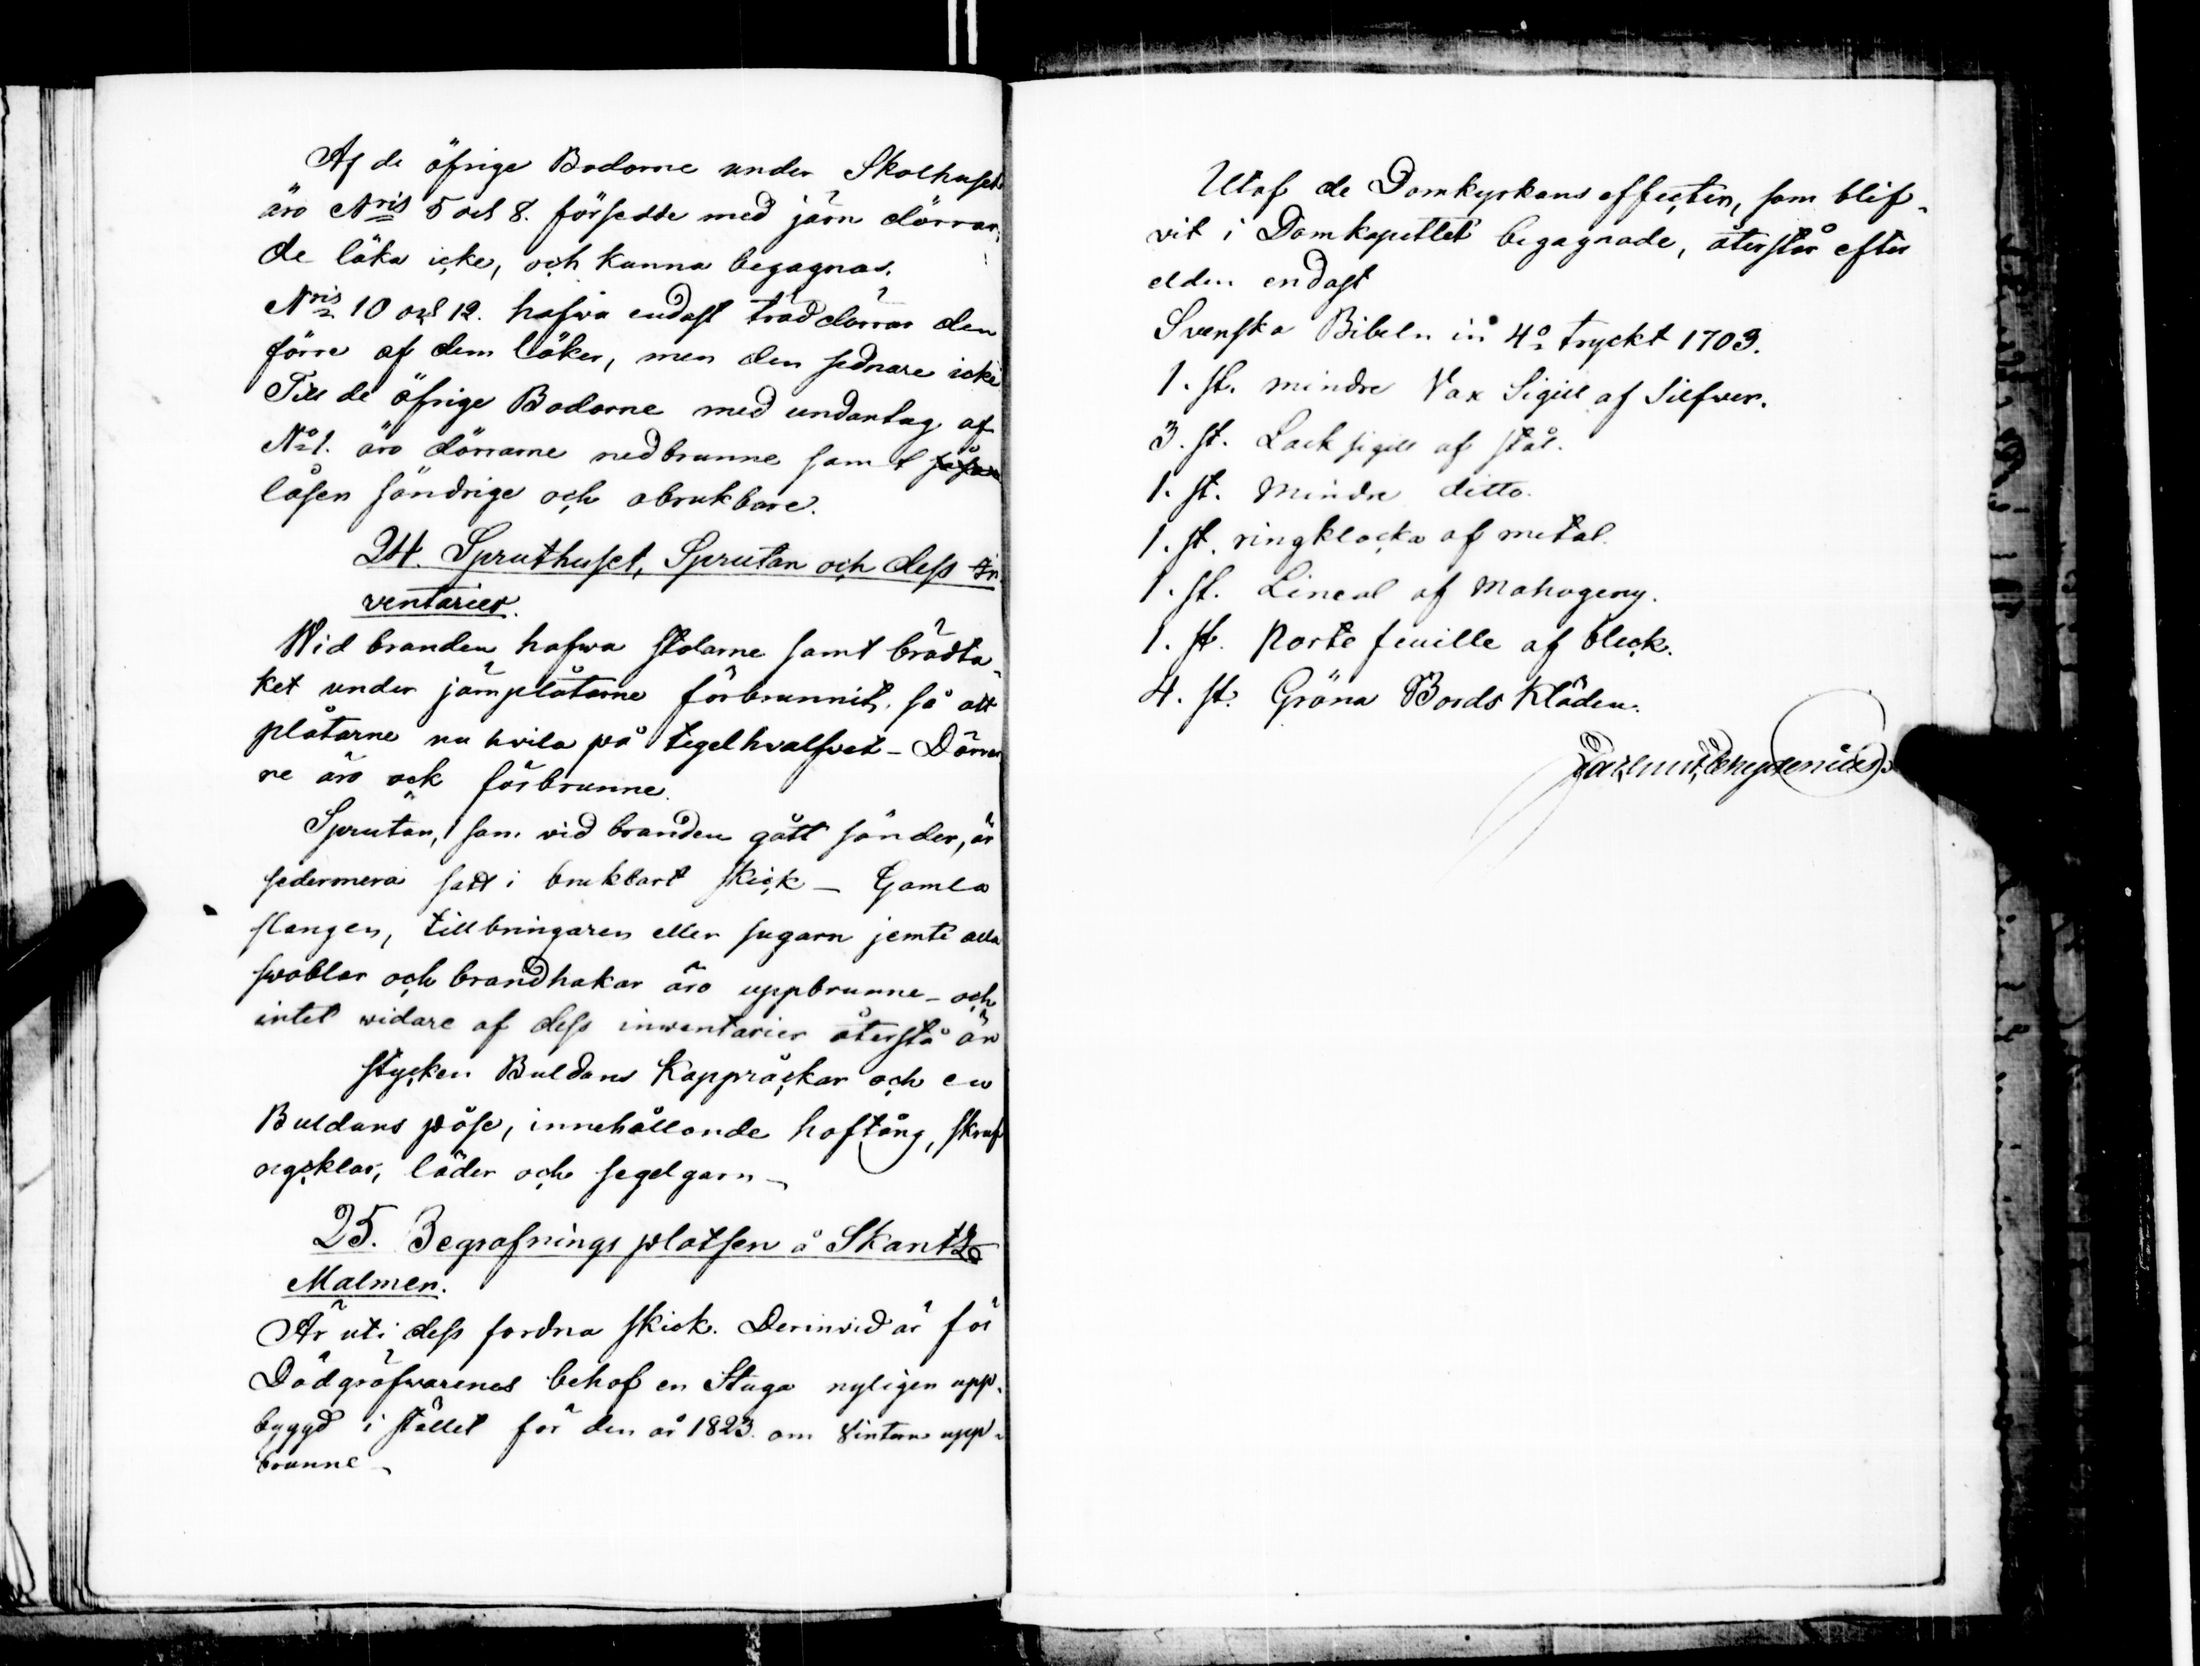 Af de öfrige Bodorne under Skolhuset
äro Nris 5 och 8. försedde med järn dörrar,
de läka icke, och kunna begagnas.
Nris 10 och 12. hafva endast träd dörrar den
förre af dem läker, men den sednare icke
Till de öfrige Bodorne med undantag af
No 1. äro dörrarne nedbrunne samt
låsen söndrige och obrukbare.
24. Spruthuset, Sprutan och dess in
ventarier.
Wid branden hafwa stolarne samt brädta-
ket under järnplåtarne förbrunnit, så att
plåtarne nu hvila på tegelhvalfvet - Dörrar
ne äro ock förbrunne.
Sprutan, som vid branden gått sönder, är
sedermera satt i brukbart skick - Gamla
slangen, tillbringaren eller sugarn jemte alla
swablar och brandhakar äro uppbrunne - och
intet widare af dess inwentarier återstå än
stycken Buldans Kappråckar och en
Buldans påse, innehållande hoftång, skruf
nycklar, läder och segelgarn -
25. Begrafnings platsen å Skantz
Malmen.
Är uti dess fordna skick. Derinvid är för
Dödgräfwarenes behof en Stuga nyligen upp-
byggd i stället för den år 1823. om Vintern upp-
brunne -
Utaf de Domkyrkans effecter, som blif-
vit i Domkapitlet begagnade, återstår efter
elden endast
Svenska Bibeln in 4o tryckt 1703.
1. st. mindre Vax Sigill af Silfwer.
3. st. Lack sigill af stål.
1. st. Mindre ditto.
1. st. ringklocka af metal.
1. st. Lineal af Mahogeny.
1. st. Porte feuille af bleck.
4. st. Gröna Bords Kläden.